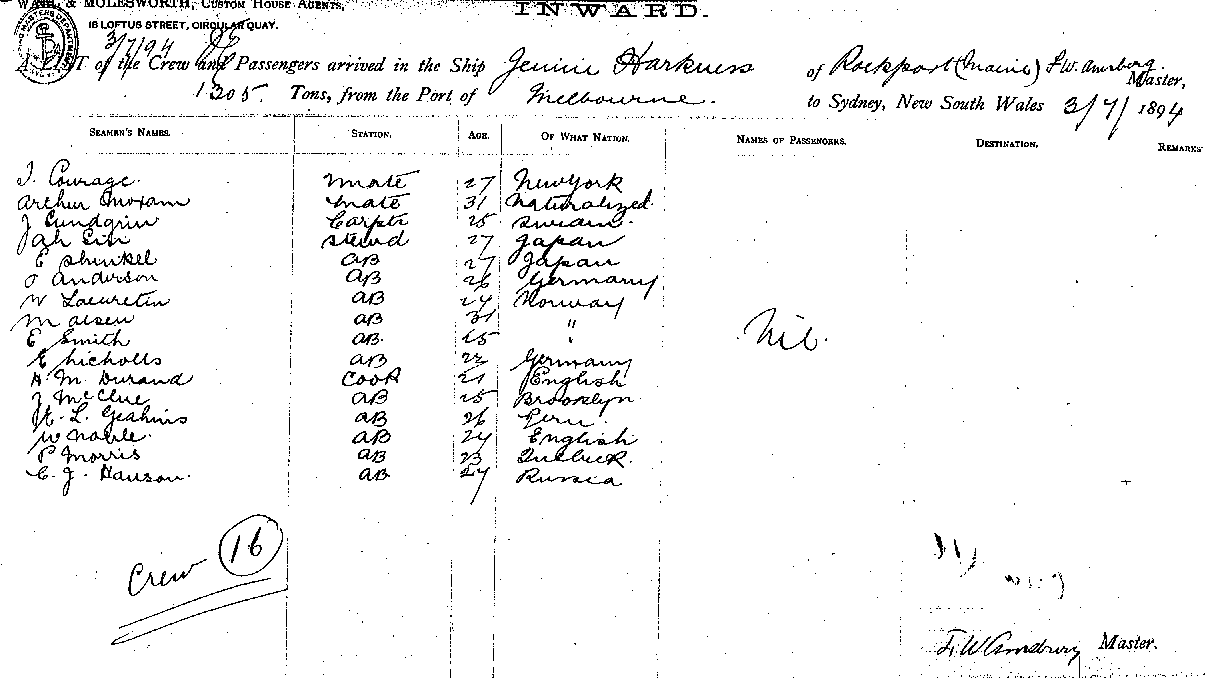 & MOLESWORTH, CUSTOM HOUSE AGENTS,
16 LOFTUS STREET, CIRCULAR QUAY.
INWARD.
3/7/94
A LIST of the Crew and Passengers arrived in the Ship Jennie Harkness of Rockport (Maine) F. W. Amsberg Master,
1305 Tons, from the Port of Melbourne. to Sydney, New South Wales 3/7/1894
SEAMEN'S NAMES. STATION. AGE. OF WHAT NATION. NAMES OF PASSENGERS. DESTINATION. REMARKS
Courage. Mate 27 New York
Arthur Moxam Mate 31 Naturalized
J Lundgrin Carptr 25
Jah Sin Stewd 27 Japan
E Shinkel AB 27 Japan
Anderson AB 26 Germany
W AB 24 Norway
M Olsen AB 31 "
E Smith AB. 25 "
E Nicholls AB 22 Germany
A. M. Durand Cook 21 English
J McClue AB 25 Brooklyn
H. L. AB 26 Peru
W Noble. AB 24 English
P Morris AB 23
C. J. Hanson. AB 27 Russia
Nil.
Crew 16
F. W Amsbury Master.